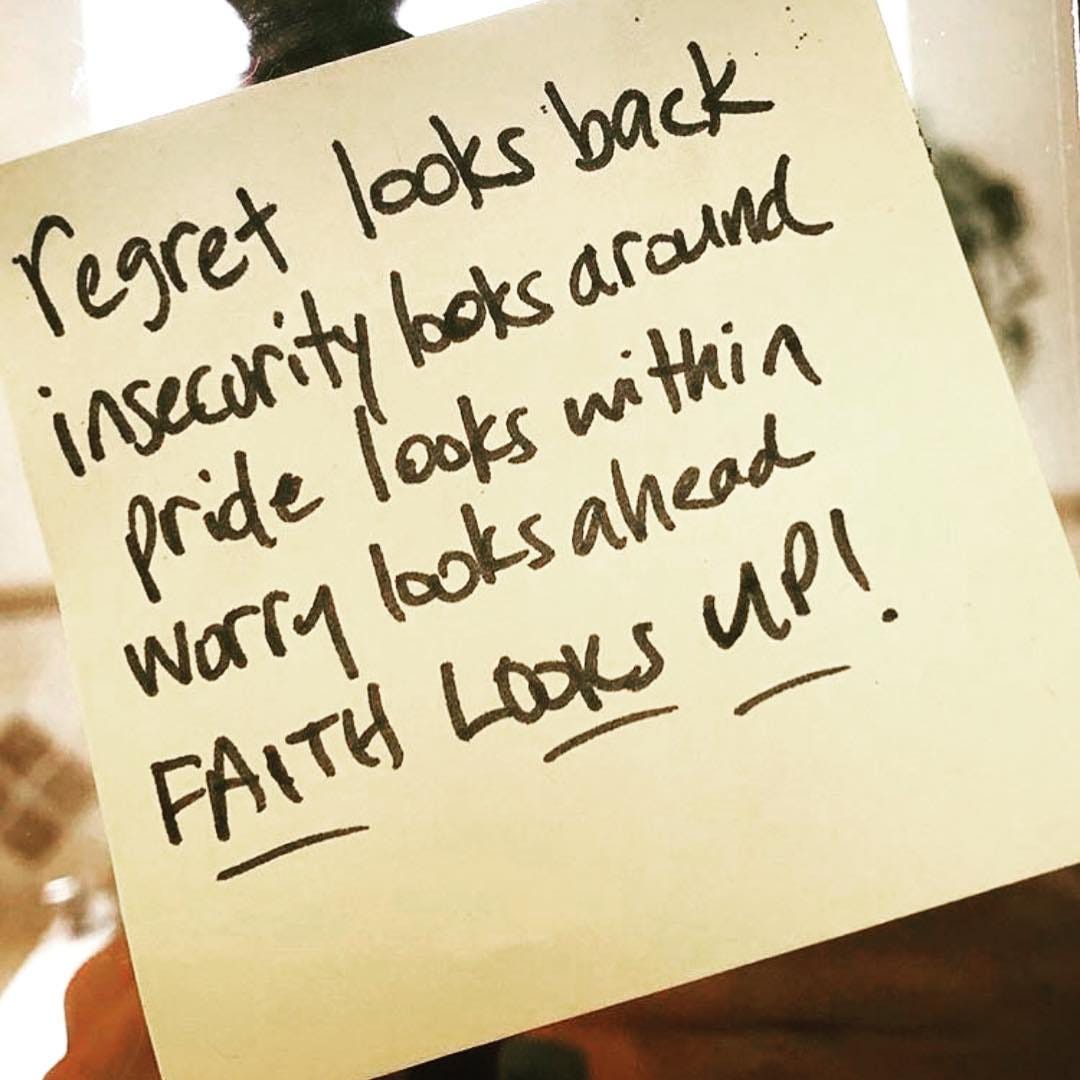 regret looks back
insecurity looks around
pride looks within
worry looks ahead
FAITH LOOKS UP!